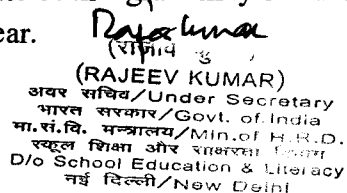 ear.
(RAJEEV KUMAR)
अवर सचिव/Under Secretary
भारत सरकार/Govt. of India
मा.सं.वि. मन्त्रालय/Min.of H.R.D.
स्कूल शिक्षा और साक्षरता
D/o School Education & Literacy
नई दिल्ली/New Delhi